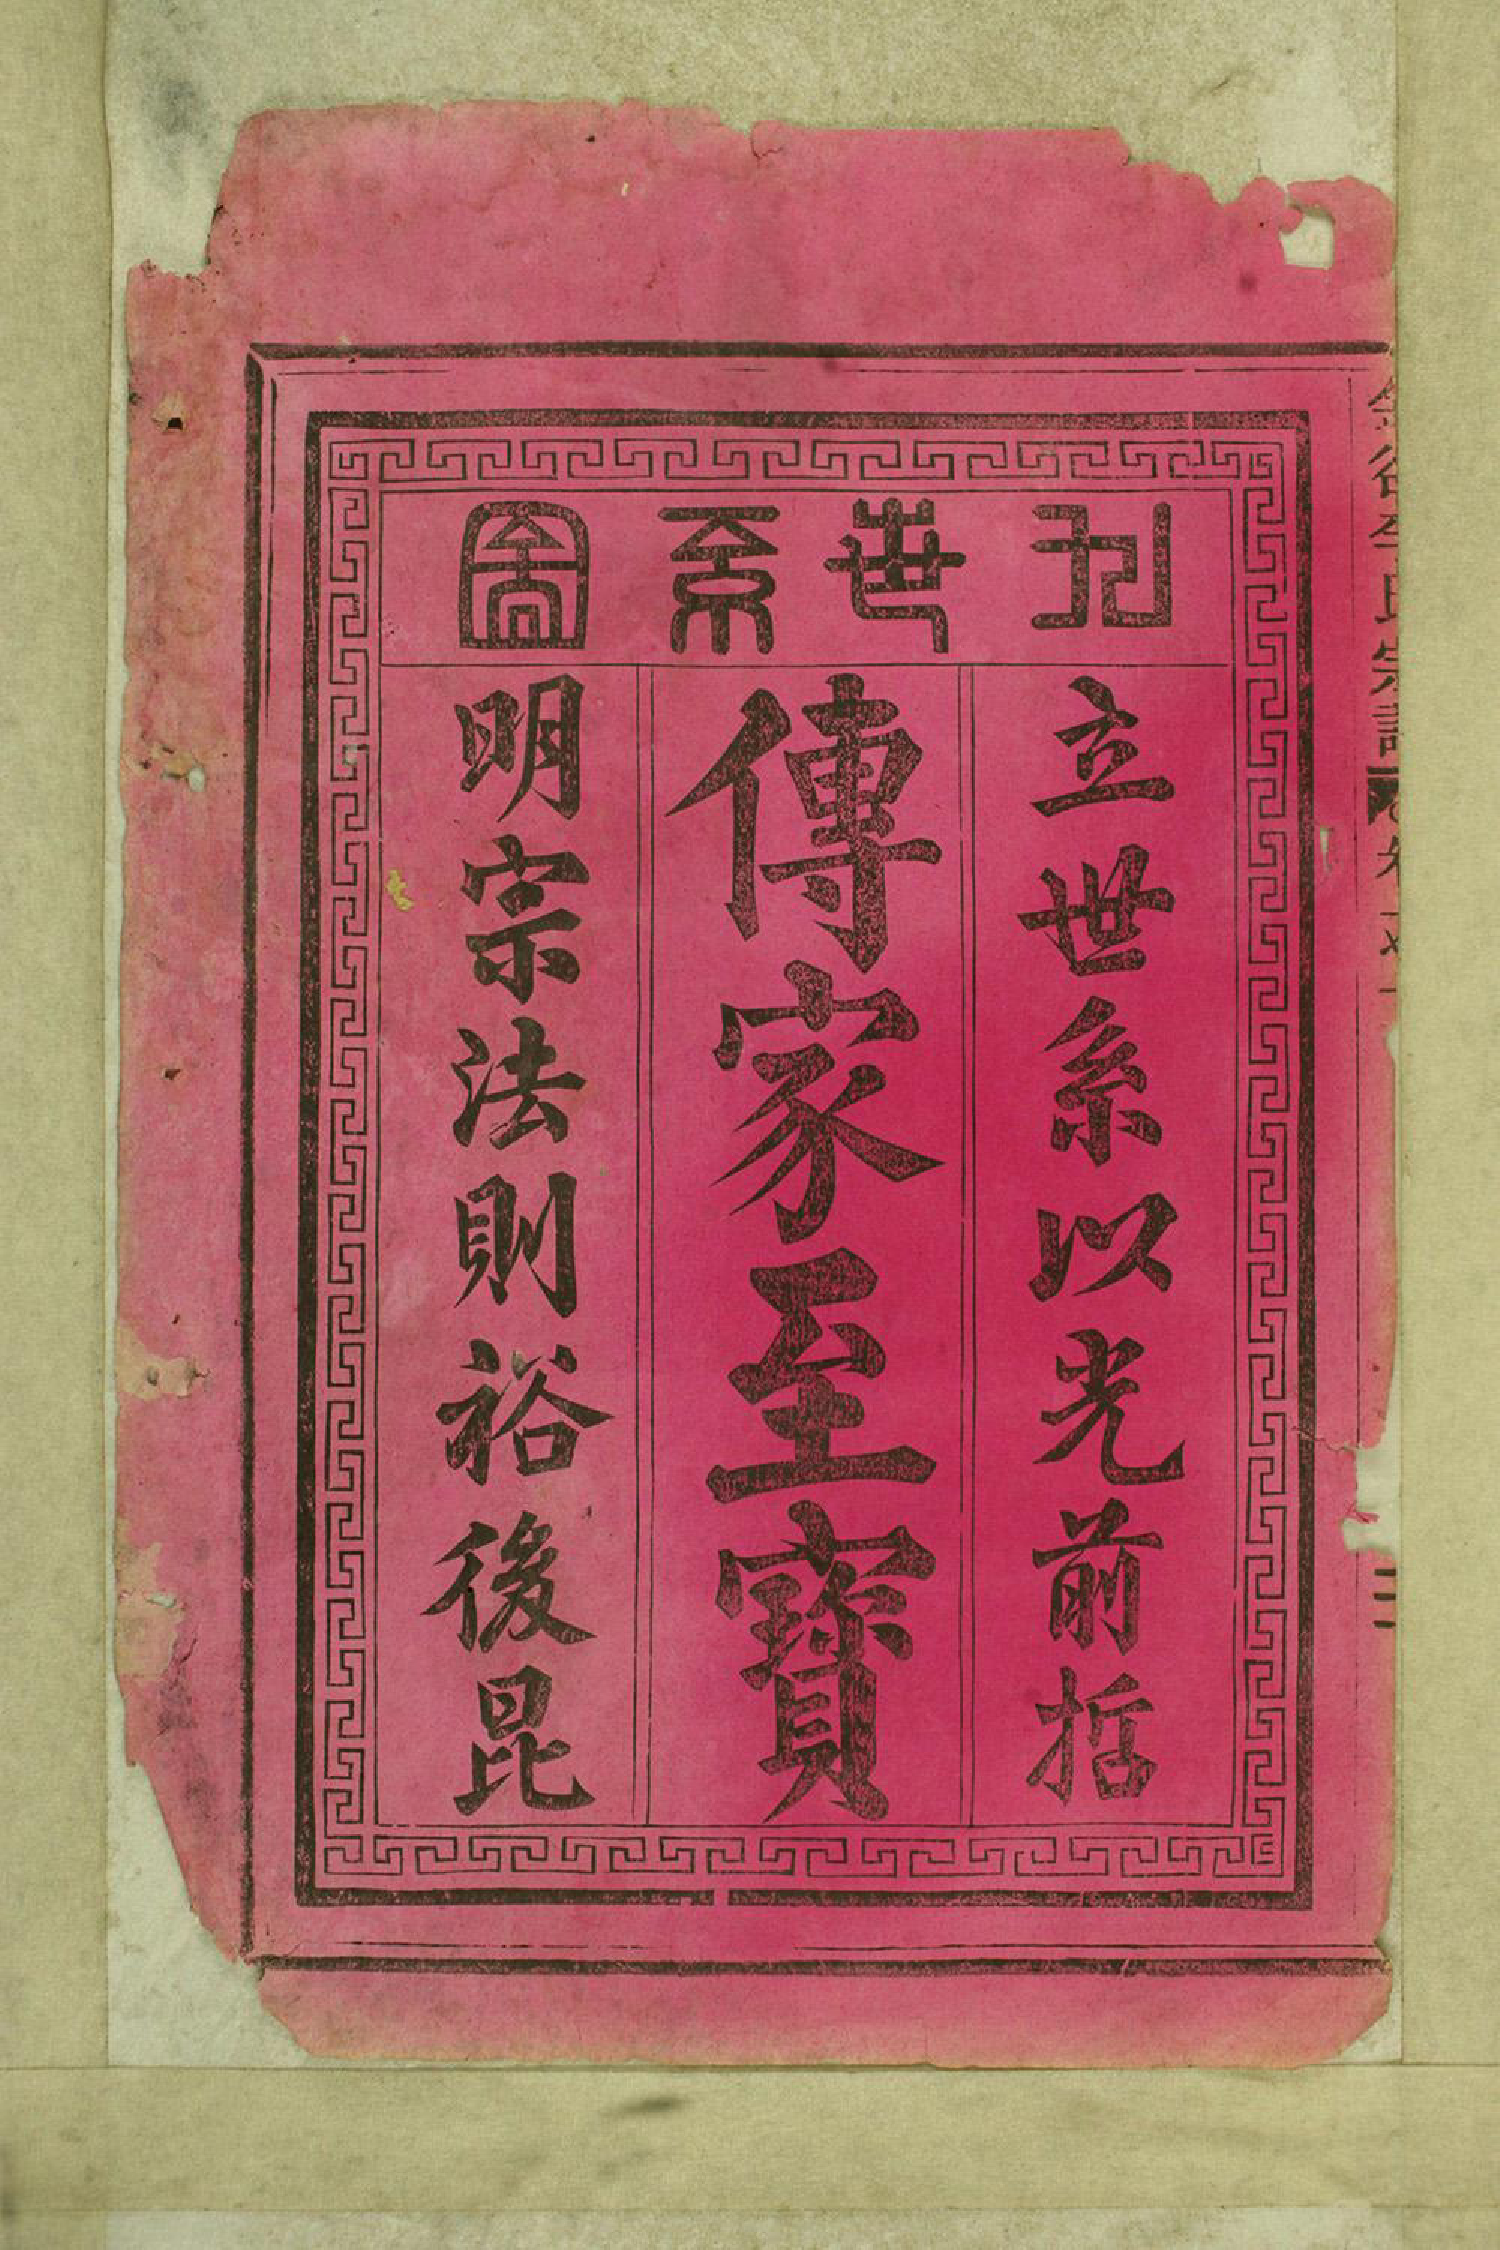 世系圖
立世系以光前括
傳家至寶
明宗法則裕後昆